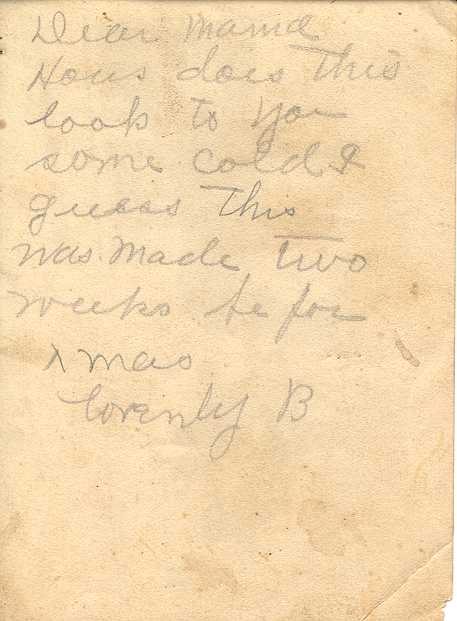 Dear Mama
Hows does this
look to you
some cold I
guess This
was made two
weeks be for
Xmas
B